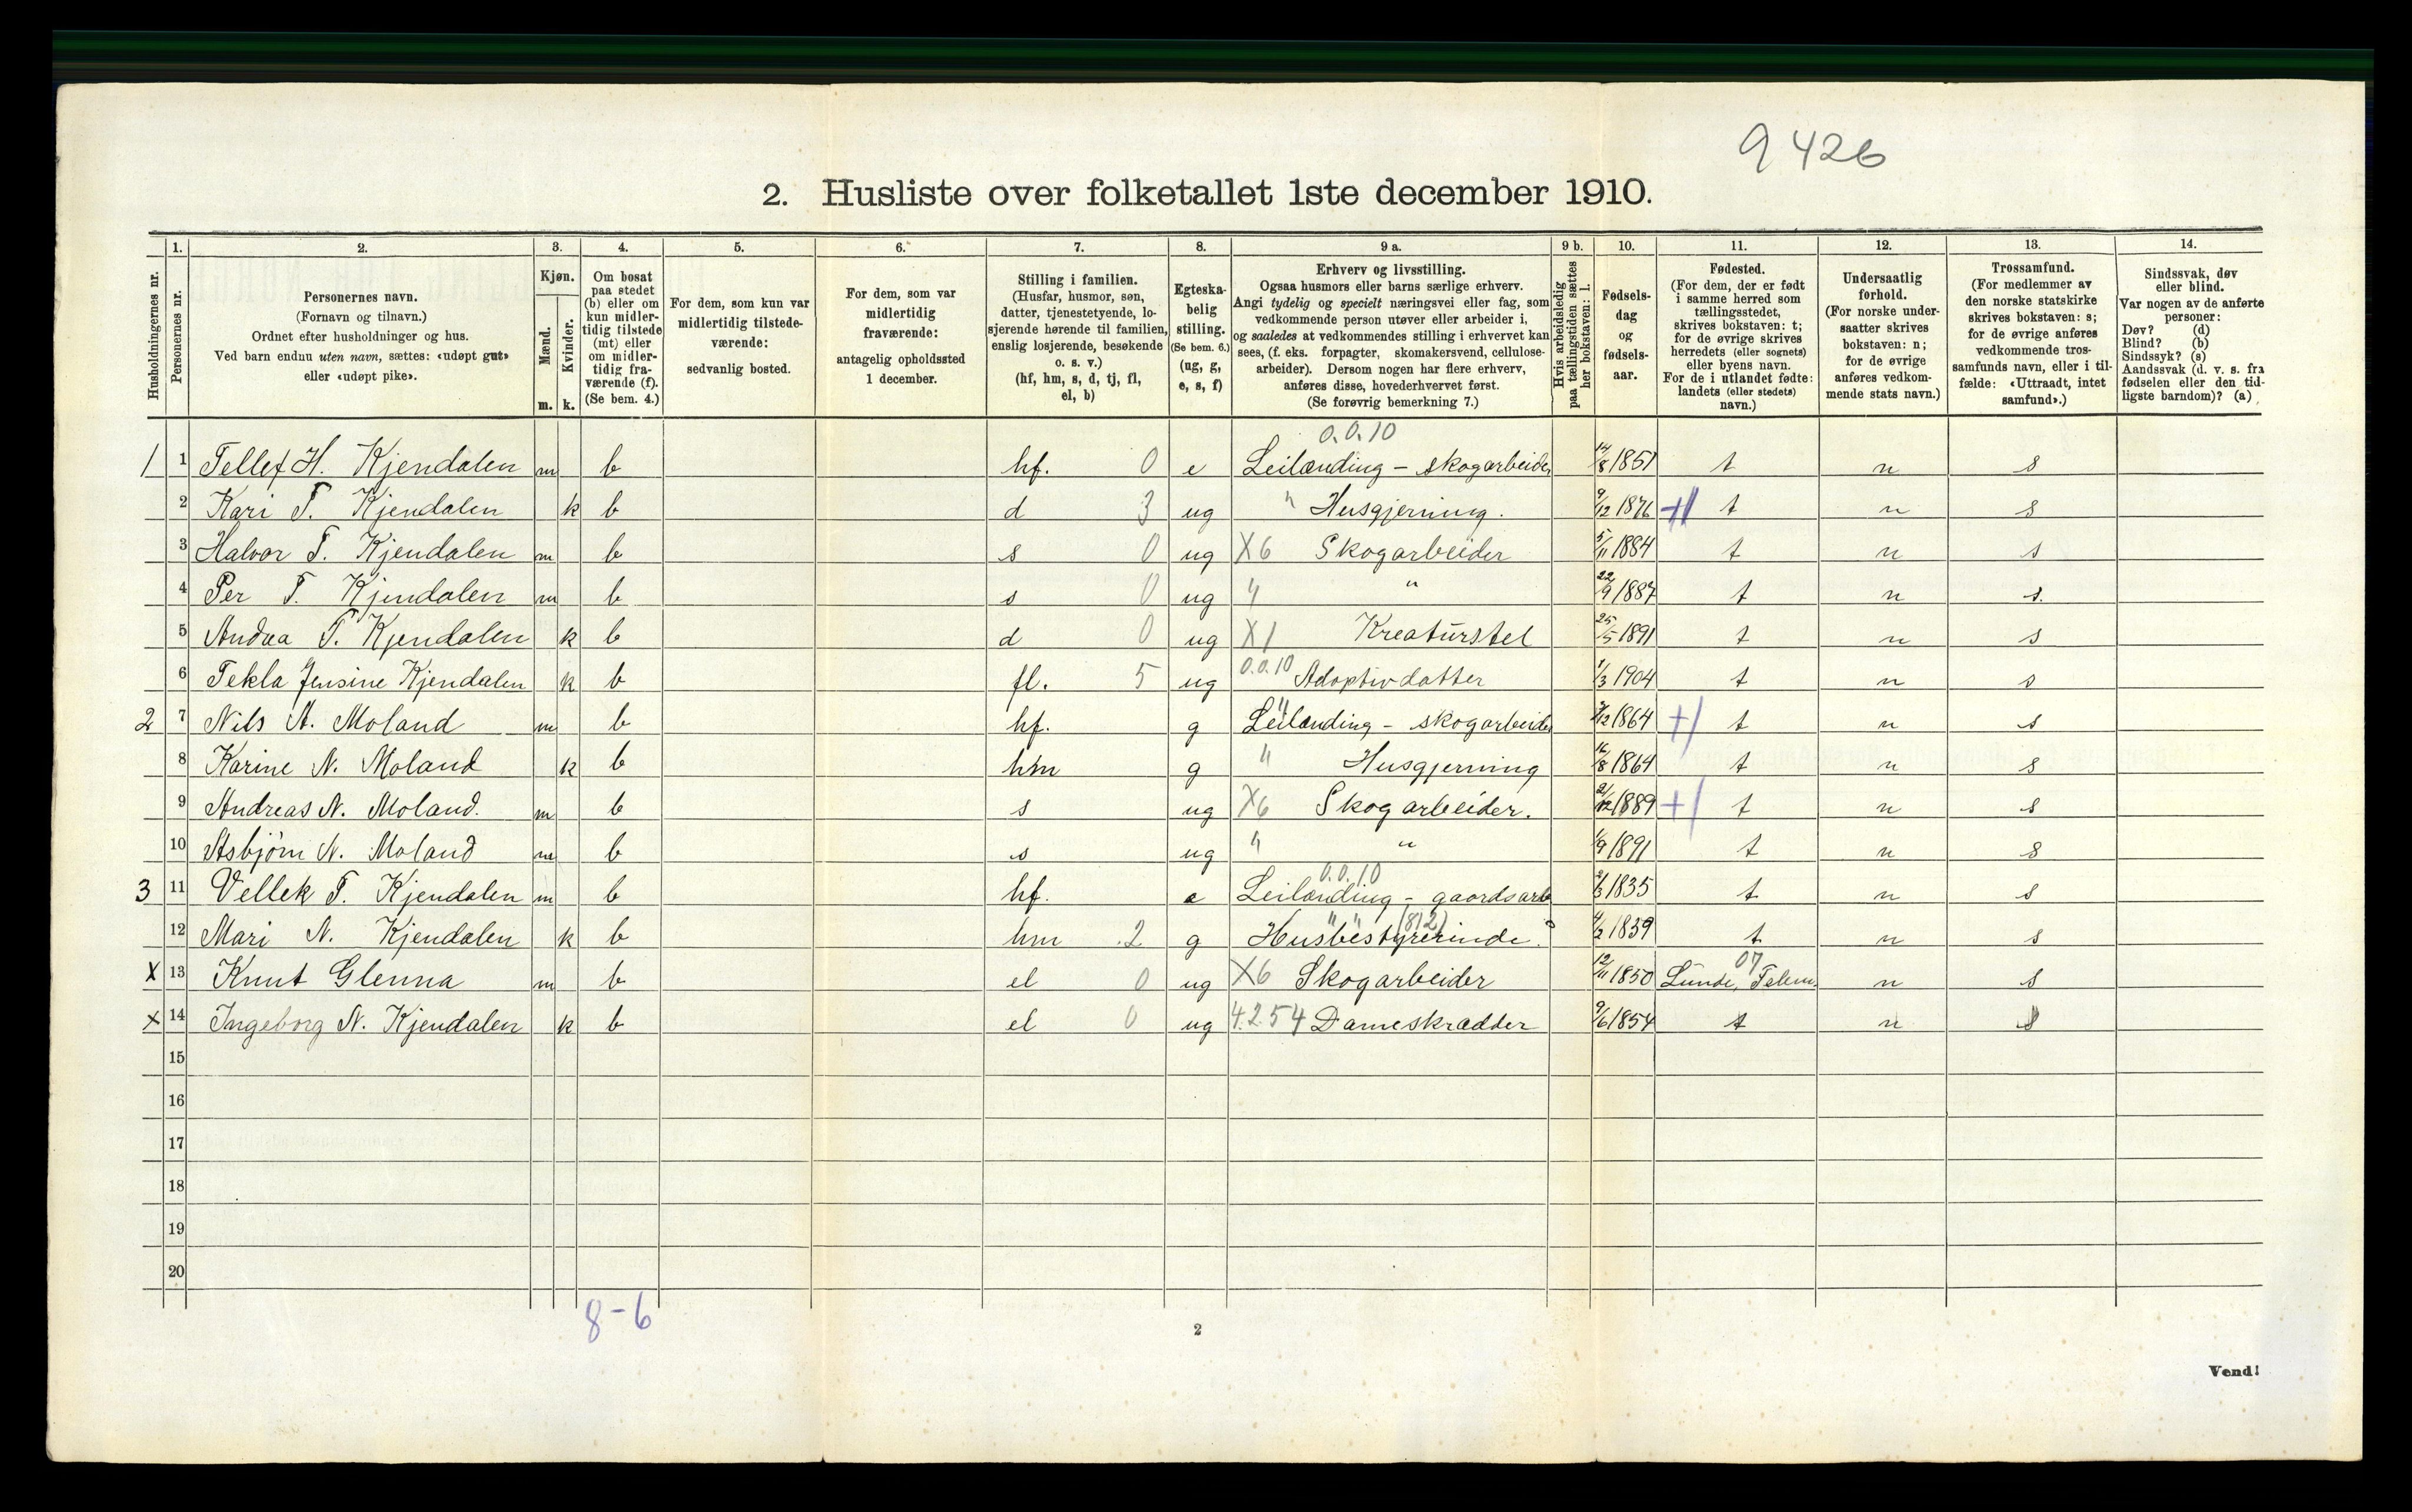 9426
2. Husliste over folketallet 1ste december 1910.
Husholdningernes nr.
1. Personernes nr.
2. Personernes navn.
(Fornavn og tilnavn.)
Ordnet efter husholdninger og hus.
Ved barn endnu uten navn, sættes: «udøpt gut»
eller «udøpt pike».
3. Kjøn.
Mænd. m.
Kvinder. k.
4. Om bosat
paa stedet
(b) eller om
kun midler-
tidig tilstede
(mt) eller
om midler-
tidig fra-
værende (f).
(Se bem. 4.)
5. For dem, som kun var
midlertidig tilstede-
værende:
sedvanlig bosted.
6. For dem, som var
midlertidig
fraværende:
antagelig opholdssted
1 december.
7. Stilling i familien.
(Husfar, husmor, søn,
datter, tjenestetyende, lo-
sjerende hørende til familien,
enslig losjerende, besøkende
o. s. v.)
(hf, hm, s, d, tj, fl,
el, b)
8. Egteska-
belig
stilling.
(Se bem. 6.)
(ug, g,
e, s, f)
9 a. Erhverv og livsstilling.
Ogsaa husmors eller barns særlige erhverv.
Angi tydelig og specielt næringsvei eller fag, som
vedkommende person utøver eller arbeider i,
og saaledes at vedkommendes stilling i erhvervet kan
sees, (f. eks. forpagter, skomakersvend, cellulose-
arbeider). Dersom nogen har flere erhverv,
anføres disse, hovederhvervet først.
(Se forøvrig bemerkning 7.)
9 b. Hvis arbeidsledig
paa tællingstiden sættes
her bokstaven: l.
10. Fødsels-
dag
og
fødsels-
aar.
11. Fødested.
(For dem, der er født
i samme herred som
tællingsstedet,
skrives bokstaven: t;
for de øvrige skrives
herredets (eller sognets)
eller byens navn.
For de i utlandet fødte:
landets (eller stedets)
navn.)
12. Undersaatlig
forhold.
(For norske under-
saatter skrives
bokstaven: n;
for de øvrige
anføres vedkom-
mende stats navn.)
13. Trossamfund.
(For medlemmer av
den norske statskirke
skrives bokstaven: s;
for de øvrige anføres
vedkommende tros-
samfunds navn, eller i til-
fælde: «Uttraadt, intet
samfund».)
14. Sindssvak, døv
eller blind.
Var nogen av de anførte
personer:
Døv? (d)
Blind? (b)
Sindssyk? (s)
Aandssvak (d. v. s. fra
fødselen eller den tid-
ligste barndom)? (a)
0.0.10
1 1 Tellef H. Kjendalen m b hf. 0 e Leilænding - skogarbeider 14/8 1851 t n s
2 Kari T. Kjendalen k b d 3 ug " Husgjerning. 9/12 1876 t n s
3 Halvor T. Kjendalen m b s 0 ug X6 Skogarbeider 5/11 1884 t n s
4 Per T. Kjendalen m b s 0 ug " " 22/9 1887 t n s.
5 Andrea T. Kjendalen k b d 0 ug X1 Kreaturstel 25/5 1891 t n s
6 Tekla Jensine Kjendalen k b fl. 5 ug 0.0.10 Adoptivdatter 1/3 1904 t n s
2 7 Nils A. Moland m b hf. g Leilænding - skogarbeider 1864 t n s
8 Karine N. Moland k b hm g " Husgjerning 16/8 1864 t n s
9 Andreas N. Moland. m b s ug X6 Skogarbeider. 1889 t n s
10 Asbjørn N. Moland m b s ug " " 1/9 1891 t n s
0.0.10
3 11 Vellek T. Kjendalen m b hf. Leilænding - gaardsarb 2/3 1835 t n s
12 Mari N. Kjendalen k b hm 2 g Husbestyrerinde. (812) 4/2 1839 t n s
X 13 Knut Glenna m b el 0 ug X6 Skogarbeider 12/11 1850 Lunde, Telem. 07 n s
X 14 Ingeborg N. Kjendalen k b el 0 ug 4.2.54 Dameskrædder 9/6 1854 t n s
15
16
17
18
19
20
8-6
2
Vend!